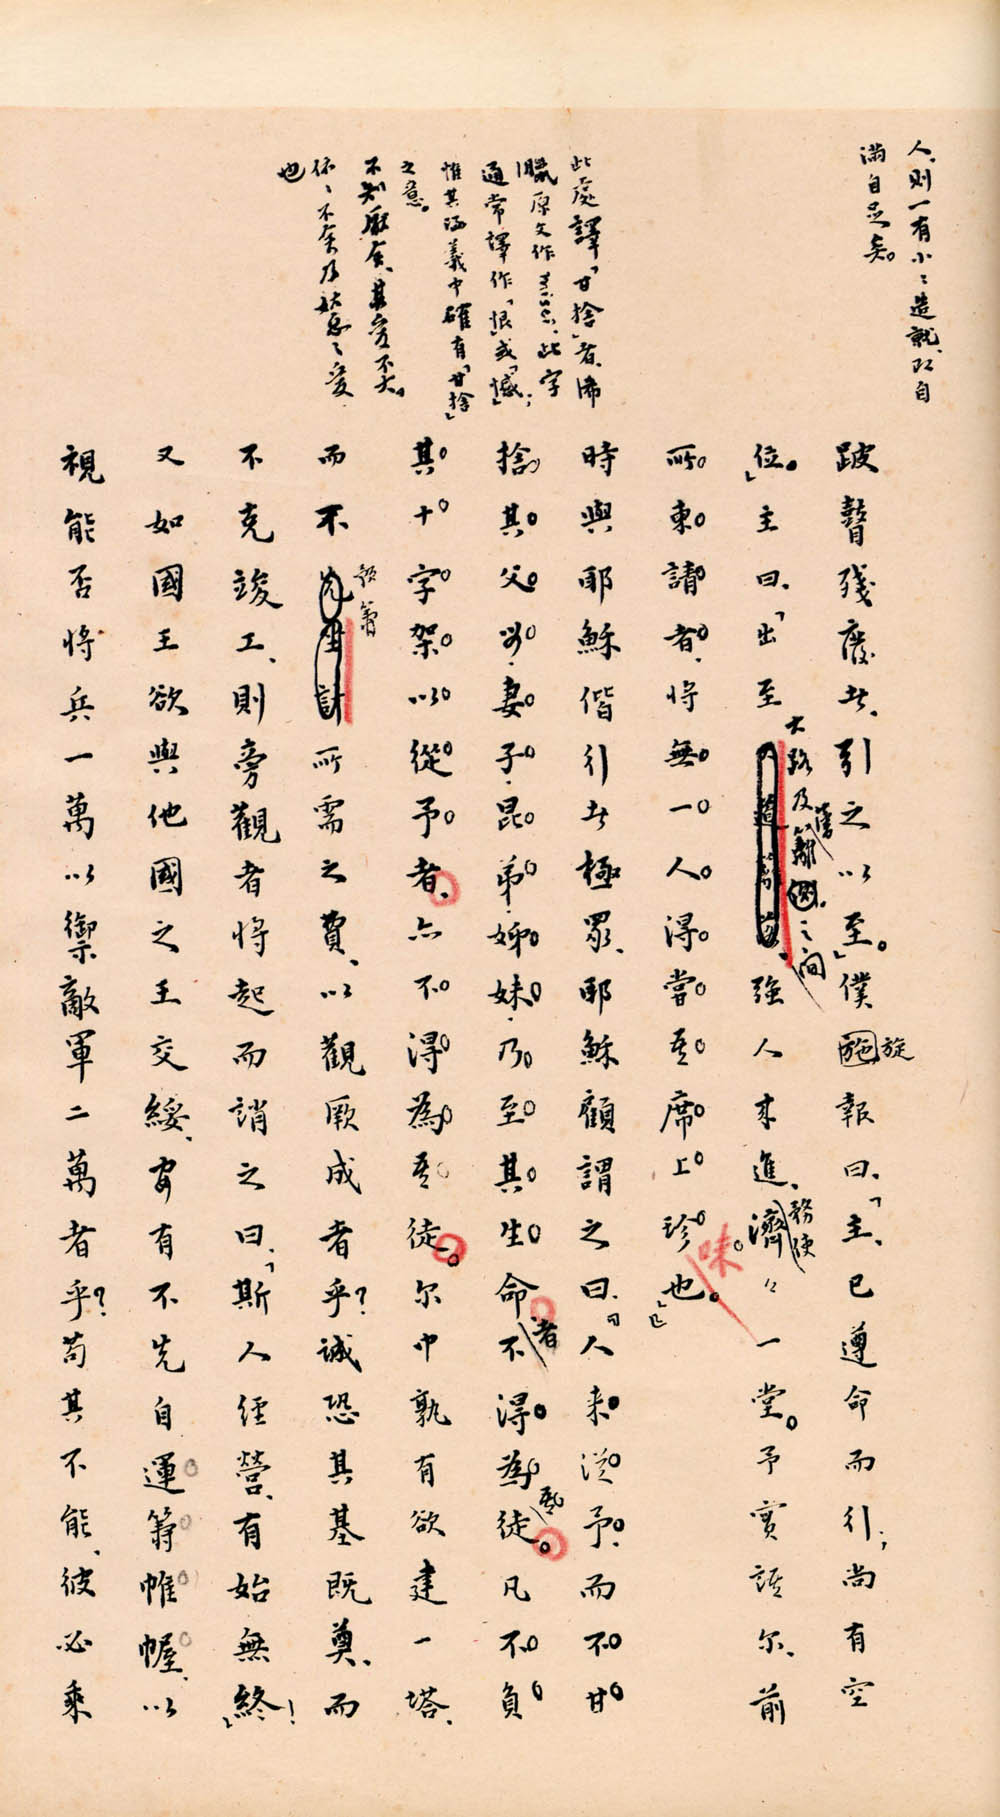 人、則一有小小造就、即自
滿自足矣。
此處譯「甘捨」者、希
臘原文作 miseo、此字
通常譯作「恨」或「憾」;
惟其涵義中確有「甘捨」
之意。
不知厭舍、其愛不大。
依依不舍乃姑息之愛
也
跛瞽殘廢者、引之以至。」僕旋報曰、「主、已遵命而引;尚有空
位。」主曰、「出至大路及舊籬之間、強人來進、務使濟濟一堂。予實語爾、前
所柬請者、將無一人得嘗吾席上珍味也。」
時與耶穌偕行者極眾、耶穌顧謂之曰、「人來從予、而不甘
捨其父母、妻子、昆弟、姊妹、乃至其生命者、不得為吾徒。凡不負
其十字架以從予者、亦不得為吾徒。爾中孰有欲建一塔、
而不預籌所需之費、以觀厥成者乎?誠恐其基既奠、而
不克竣工、則旁觀者將起而誚之曰、「斯人經營、有始無終!」
又如國王欲與他國之王交綏、安有不先自運籌帷幄、以
視能否將兵一萬以禦敵軍二萬者乎?苟其不能、彼必乘